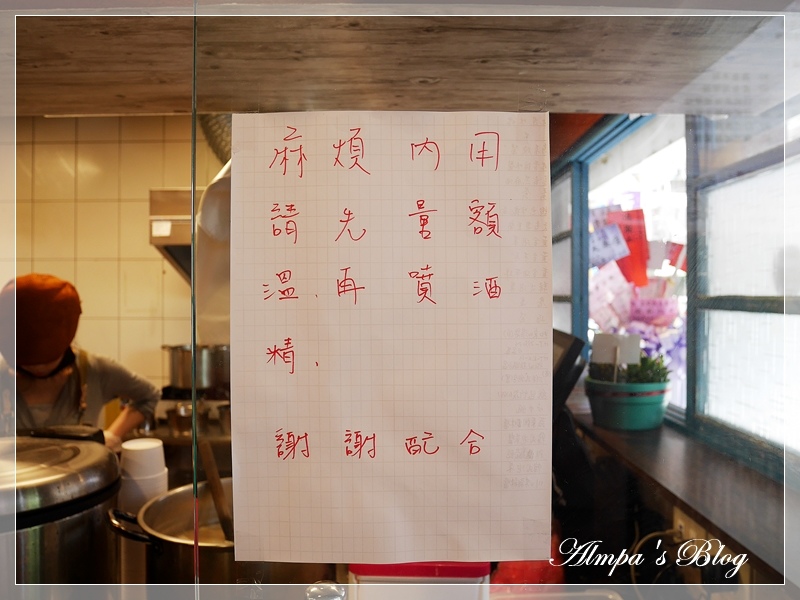 麻煩內用
請先量額
溫、再噴酒
精、
謝謝配合
Almpa's Blog